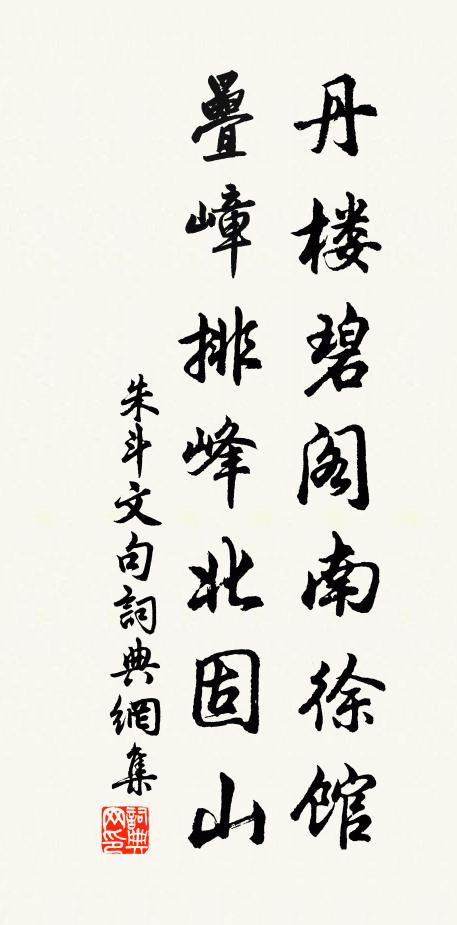 丹楼碧阁南徐馆
疊嶂排峰北固山
朱斗文句詞典網集
詞典网印